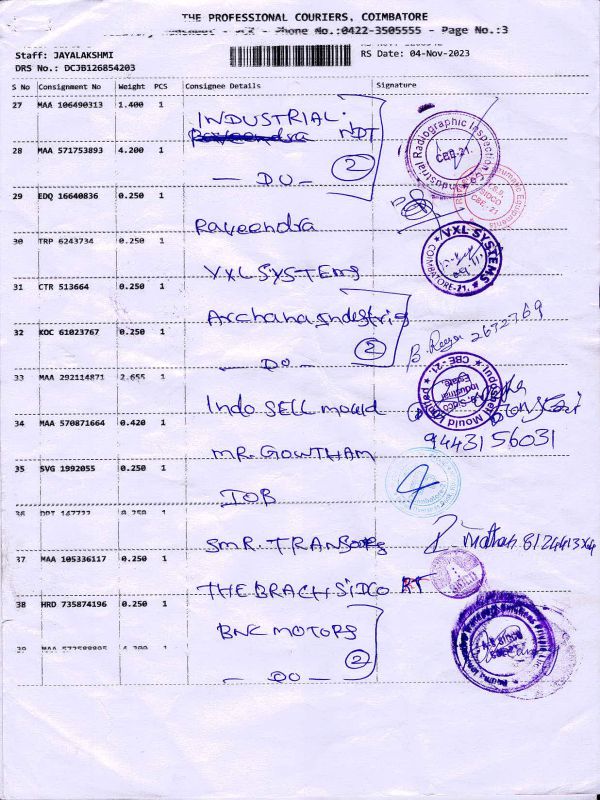 THE PROFESSIONAL COURIERS, COIMBATORE
Phone No.:0422-3505555 - Page No.:3
Staff: JAYALAKSHMI
RS Date: 04-Nov-2023
DRS No.: DCJB126854203
S No Consignment No Weight PCS Consignee Details Signature
27 MAA 106490313 1.400 1 INDUSTRIAL. NDT
28 MAA 571753893 4.200 1 — DO — 2
Industrial Radiographic Inspection CBE-21.
29 EDQ 16640836 0.250 1 Raveendra
SIDCO CBE - 21
30 TRP 6243734 0.250 1 VXL SYSTEMS
VXL SYSTEMS COIMBATORE-21.
31 CTR 513664 0.250 1 Archana Indestris
32 KOC 61023767 0.250 1 — DO — 2
2672769
33 MAA 292114871 2.655 1 Indo SELL mould
Indoshell Mould Limited SIDCO Industrial Estate CBE-21.
34 MAA 570871664 0.420 1 MR. GOWTHAM
9443156031
35 SVG 1992055 0.250 1 IOB
36 DPT 147722 0.250 1 SMR. TRANSORPS
37 MAA 105336117 0.250 1 THE BRACH SIDCO
38 HRD 735874196 0.250 1 BNC MOTORS
39 MAA 572588805 4.300 1 — DO — 2